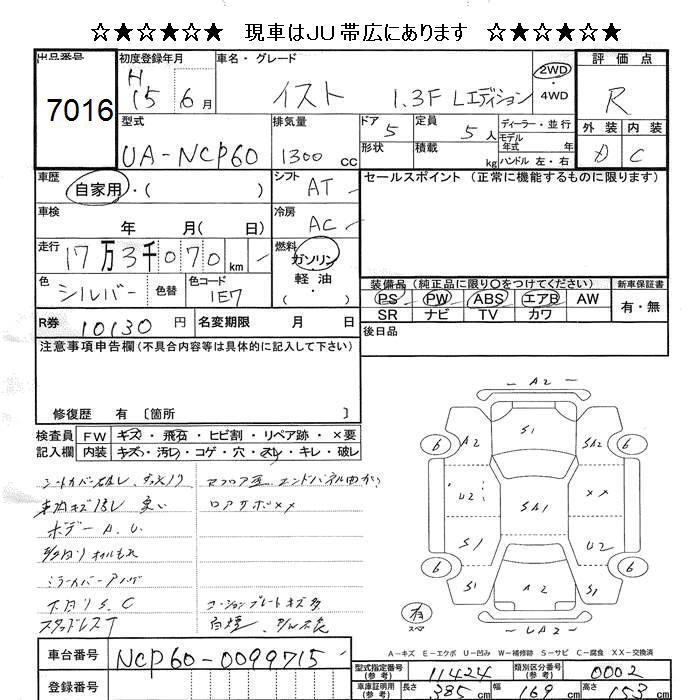 ☆★☆★☆★ 現車はJU帯広にあります ☆★☆★☆★
出品番号 初度登録年月 車名・グレード 評価点
7016 H 15 6月 イスト 1.3F Lエディション 2WD ・ 4WD R
型式 排気量 ドア 5 定員 5人 ディーラー・並行 外装 内装
UA-NCP60 1300 cc 形状 積載 kg モデル 年 ハンドル 左・右 D C
車歴 自家用・( ) シフト AT セールスポイント (正常に機能するものに限ります)
車検 年 月( 日) 冷房 AC
走行 17万3千070 km 燃料 ガソリン 軽油
色 シルバー 色替 色コード 1E7 ・( )
装備品 (純正品に限り○をつけてください) 新車保証書
PS PW ABS エアB AW 有・無
SR ナビ TV カワ
R券 10130 円 名変期限 月 日 後日品
注意事項申告欄(不具合内容等は具体的に記入して下さい)
修復歴 有 〔箇所 〕
検査員 FW キズ・飛石・ヒビ割・リペア跡・×要
記入欄 内装 キズ・汚レ・コゲ・穴・スレ・キレ・破レ
ボデー A.U.
下回りS.C
スタッドレスT
A2
S1
6 A2 SA2 6
U2 SA1 ××
S1 U2
6 S1 A2 S1 6
有 スペア
A-キズ E-エクボ U-凹み W-補修跡 S-サビ C-腐食 XX-交換済
車台番号 NCP60-0099715
登録番号
型式指定番号 11424 類別区分番号 0002
車庫証明用(参考) 長さ 385 cm 幅 169 cm 高さ 153 cm